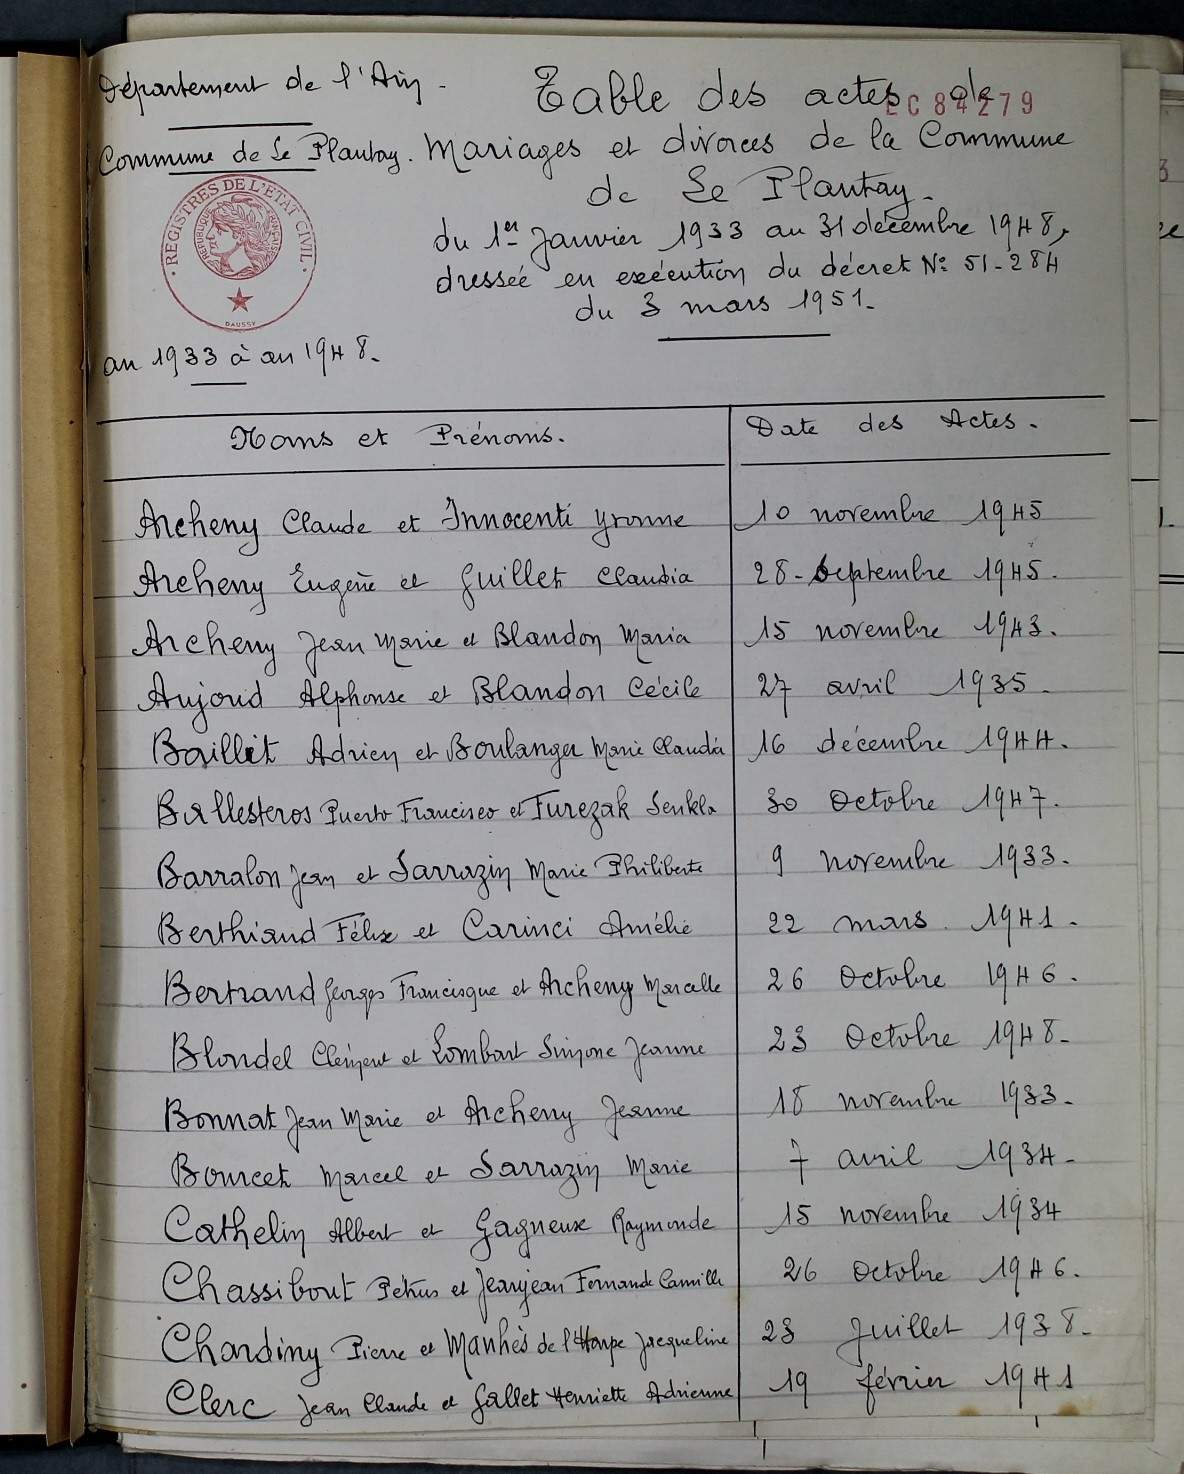 Département de l'Ain.
Table des actes de
EC 84279
Commune de Le Plantay.
Mariages et divorces de la Commune
de Le Plantay.
REGISTRES DE L'ETAT CIVIL
REPUBLIQUE FRANÇAISE
DAUSSY
du 1er Janvier 1933 au 31 décembre 1948,
dressée en exécution du décret N° 51-284
du 3 mars 1951.
an 1933 à an 1948.
Noms et Prénoms. Date des Actes.
Archeny Claude et Innocenti Yvonne 10 novembre 1945
Archeny Eugène et Guillet Claudia 28 - septembre 1945.
Archeny Jean Marie et Blandon Maria 15 novembre 1943.
Aujoud Alphonse et Blandon Cécile 27 avril 1935.
Baillet Adrien et Boulanger Marie Claudia 16 décembre 1944.
Ballesteros Puerto Francisco et Furezak Senkla 30 Octobre 1947.
Barralon Jean et Sarrazin Marie Philiberte 9 novembre 1933.
Berthiaud Félix et Carinci Amélie 22 mars 1941.
Bertrand Georges Francisque et Archeny Marcelle 26 Octobre 1946.
Blondel Clément et Lombart Simone Jeanne 23 Octobre 1948.
Bonnat Jean Marie et Archeny Jeanne 18 novembre 1933.
Bourcet Marcel et Sarrazin Marie 7 avril 1934.
Cathelin Albert et Gagneux Raymonde 15 novembre 1934
Chassibout Pétrus et Jeanjean Fernande Camille 26 Octobre 1946.
Chardiny Pierre et Manhès de l'Harpe Jacqueline 23 Juillet 1938.
Clerc Jean Claude et Gallet Henriette Adrienne 19 février 1941